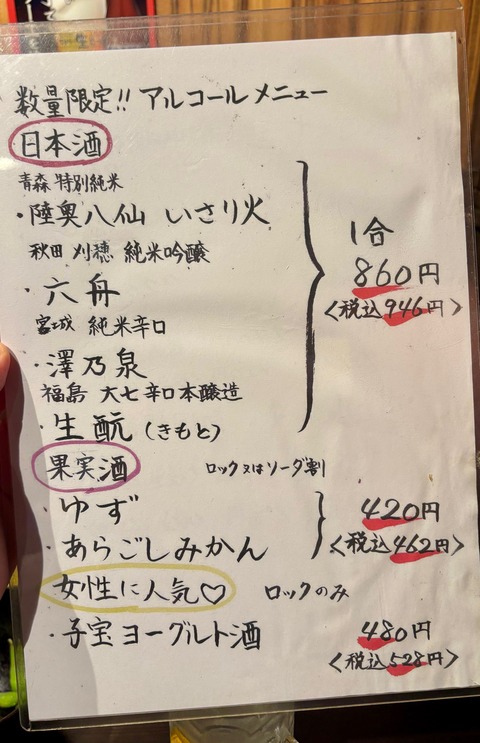 数量限定!! アルコールメニュー
日本酒
青森 特別純米
・陸奥八仙 いさり火
秋田 刈穂 純米吟醸
・六舟
宮城 純米辛口
・澤乃泉
福島 大七 辛口本醸造
・生酛(きもと)
1合
860円
<税込946円>
果実酒
ロック又はソーダ割
・ゆず
・あらごしみかん
420円
<税込462円>
女性に人気♡
ロックのみ
・子宝ヨーグルト酒
480円
<税込528円>